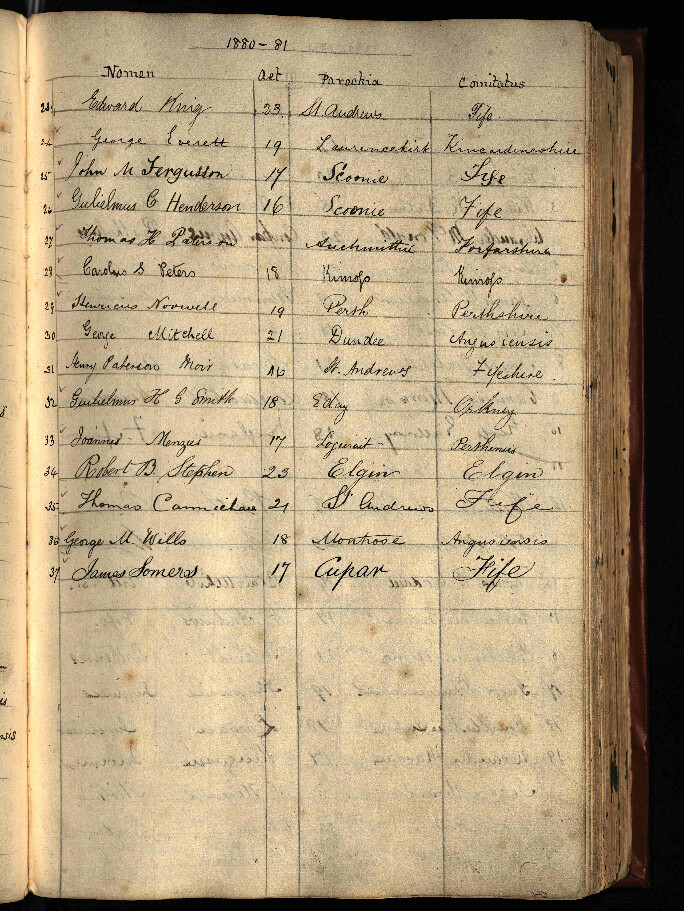 1880-81
Nomen Aet Parochia Comitatus
Edward King 23 St Andrews Fife
George Everett 19 Laurencekirk Kincardineshire
25 John M Fergusson 17 Scoonie Fife
26 Gulielmus C Henderson 16 Scoonie Fife
27 Thomas H Paterson Auchmithie Forfarshire
28 Carolus S Peters 18 Kinross Kinross
29 Henricus Norwell 19 Perth Perthshire
30 George Mitchell 21 Dundee Angusiensis
31 Henry Paterson Moir 16 St. Andrews Fifeshire.
32 Gulielmus H G Smith 18 Eday Orkney
33 Joannes Menzies 17 Logierait - Perthensis
34 Robert B Stephen 23 Elgin Elgin
35 Thomas Carmichael 21 St Andrews Fife
36 George M. Wills 18 Montrose Angusiensis
37 James Somers 17 Cupar Fife